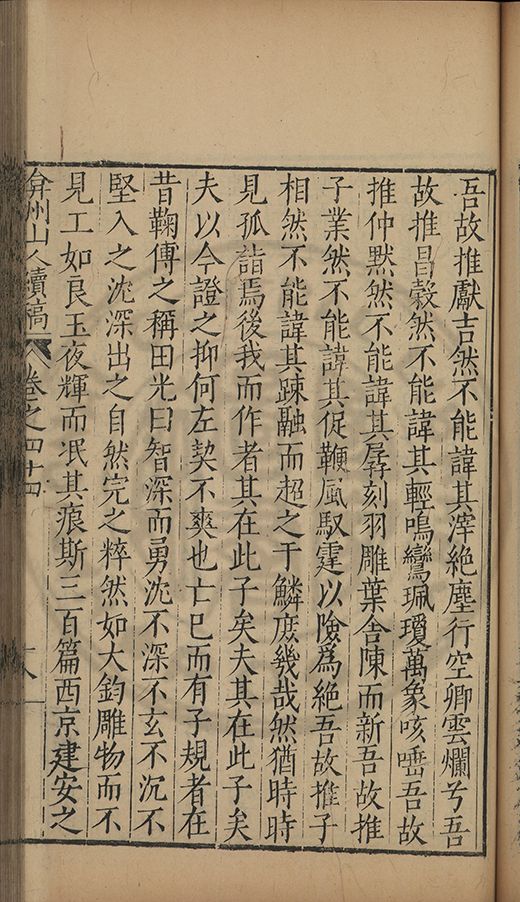 吾故推獻吉然不能諱其滓絶塵行空卿雲爛兮吾
故推昌穀然不能諱其輕鳴鸞珮瓊萬象咳唾吾故
推仲黙然不能諱其孱刻羽雕葉舍陳而新吾故推
子業然不能諱其促鞭風馭霆以險爲絶吾故推子
相然不能諱其踈融而超之于鱗庶幾哉然猶時時
見孤詣焉後我而作者其在此子矣夫其在此子矣
夫以今證之抑何左契不爽也亡巳而有子規者在
昔鞠傅之稱田光曰智深而勇沈不深不玄不沉不
堅入之沈深出之自然完之粹然如大鈞雕物而不
見工如良玉夜輝而泯其痕斯三百篇西京建安之
弇州山人續稿 卷之四十四